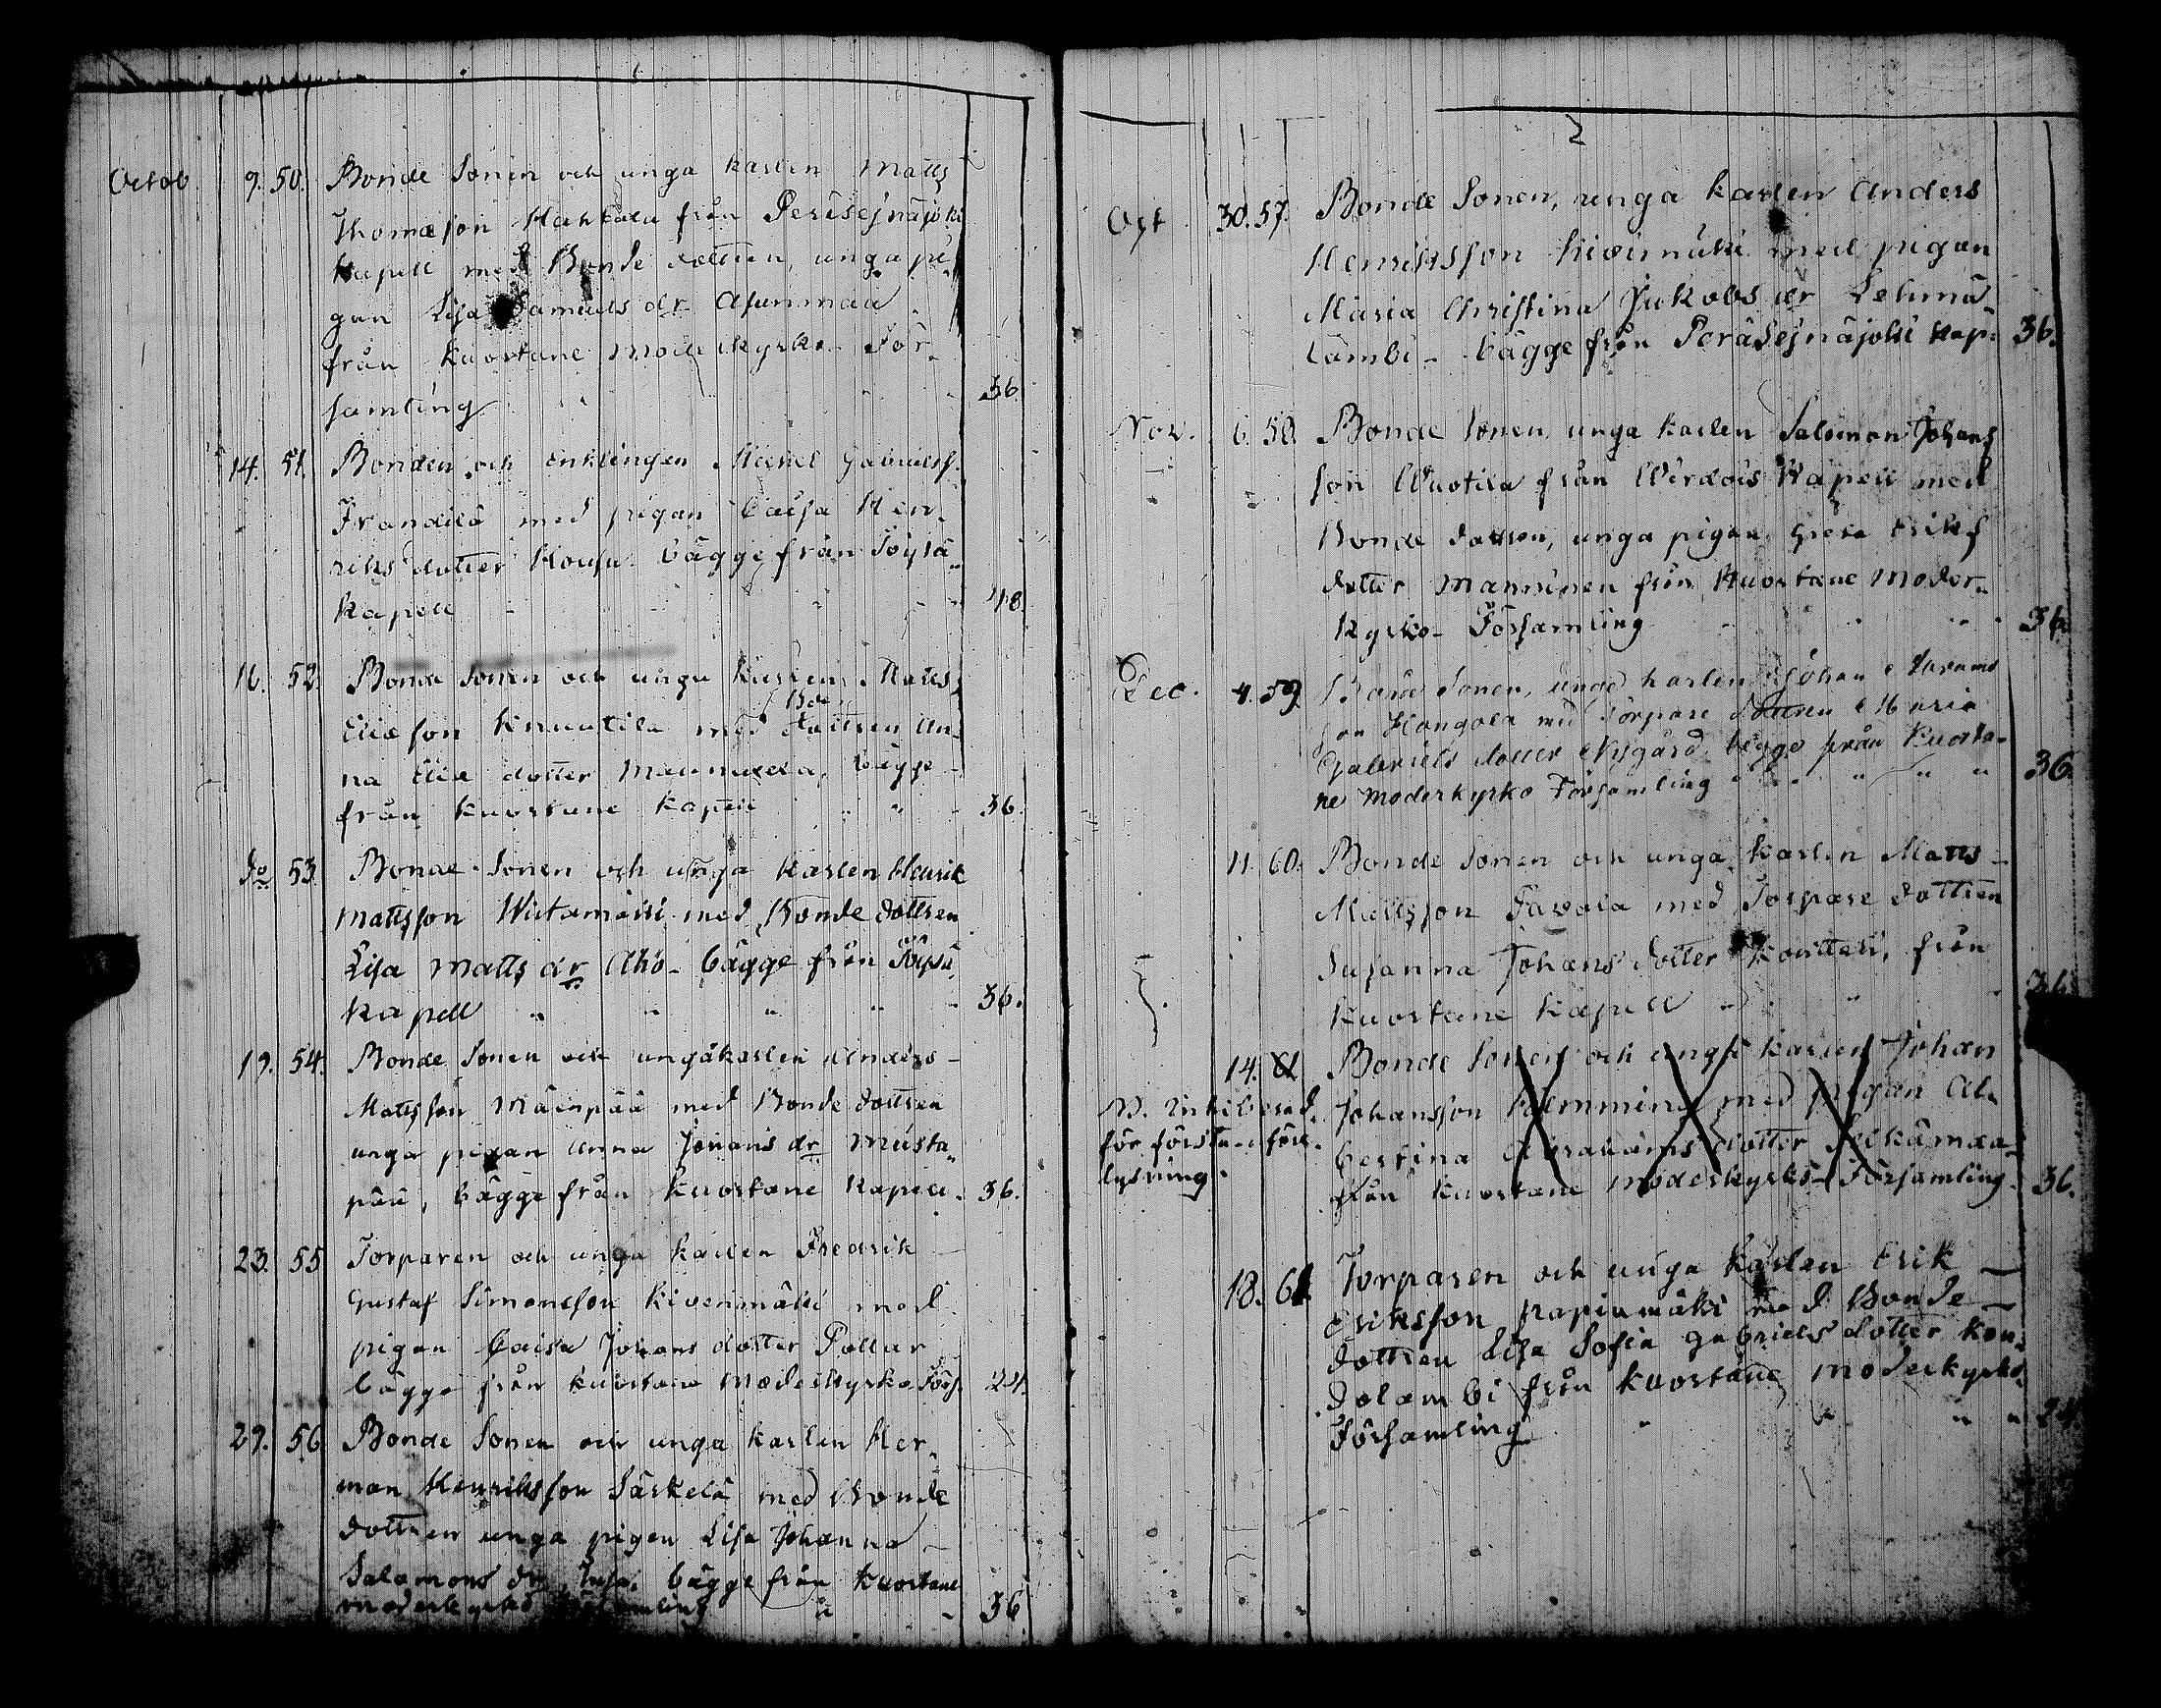 Octob. 9. 50. Bonde Sonen och unga karlen Matts
Thomæson från Peräsejnäjoki
kapell med Bonde dottren, unga pi-
gan Lisa Samuels dr Asunmaa
från Kuortane Moderkyrko För-
samling 36.
14. 51. Bonden och enklingen Michel Gabrielss.
Frandilä med pigan Caisa Hen-
riks dotter bägge från Töysä
kapell 48.
16. 52. Bonde Sonen och unga karlen Matts
Eliæson Knuutila med Bde dottren An-
na Eliæ dotter bägge
från Kuortane kapell 36.
do 53. Bonde Sonen och unga karlen Henrik
Mattsson med Bonde dottren
Lisa Matts dr Aho bägge från Töysä
kapell 36.
19. 54. Bonde Sonen och unga karlen Anders
Mattsson Mäenpää med Bonde dottren
unga pigan Anna Johans dr Musta-
pää, bägge från Kuortane kapell. 36.
23. 55 Torparen och unga karlen Fredrik
Gustaf Simonsson Kivenmäki med
pigan Caisa Johans dotter Pollar
bägge från Kuortane Moderkyrko Förs. 24.
29. 56 Bonde Sonen och unga karlen Her-
man Henriksson Särkelä med Bonde
dottren unga pigan Lisa Johanna
Salomons dr bägge från Kuortane
moderkyrko Församling 36
2
Oct. 30. 57. Bonde Sonen, unga karlen Anders
Henriksson Kivimäki med pigan
Maria Christina Jakobs dr Lehmä
lambi - bägge från Peräsejnäjoki kap: 36.
Nov. 6. 58. Bonde Sonen, unga karlen Salomon Johans
son Wuotila från Wirdois kapell med
Bonde dottren, unga pigan Greta Eriks
dotter Manninen från Kuortane Moder-
kyrko Församling 36
Dec. 4. 59. Bonde Sonen, unga karlen Johan Abrams
son Hangola med Torpare dottren Maria
Gabriels dotter Nygård, begge från Kuorta-
ne Moderkyrko Församling 36.
11. 60. Bonde Sonen och unga karlen Matts
Mattsson Pavola med Torpare dottren
Susanna Johans dotter Kouttari, från
Kuortane kapell 36
14. 61 Bonde Sonen och unga karlen Johan
Johansson Hemminki med pigan Al-
bertina Abrahams dotter
från Kuortane moderkyrko Församling. 36.
för första
lysning.
18. 61 Torparen och unga karlen Erik
Eriksson Papinmäki med Bonde
dottren Lisa Sofia Gabriels dotter Kon-
dolambi från Kuortane moderkyrko
Församling 24.